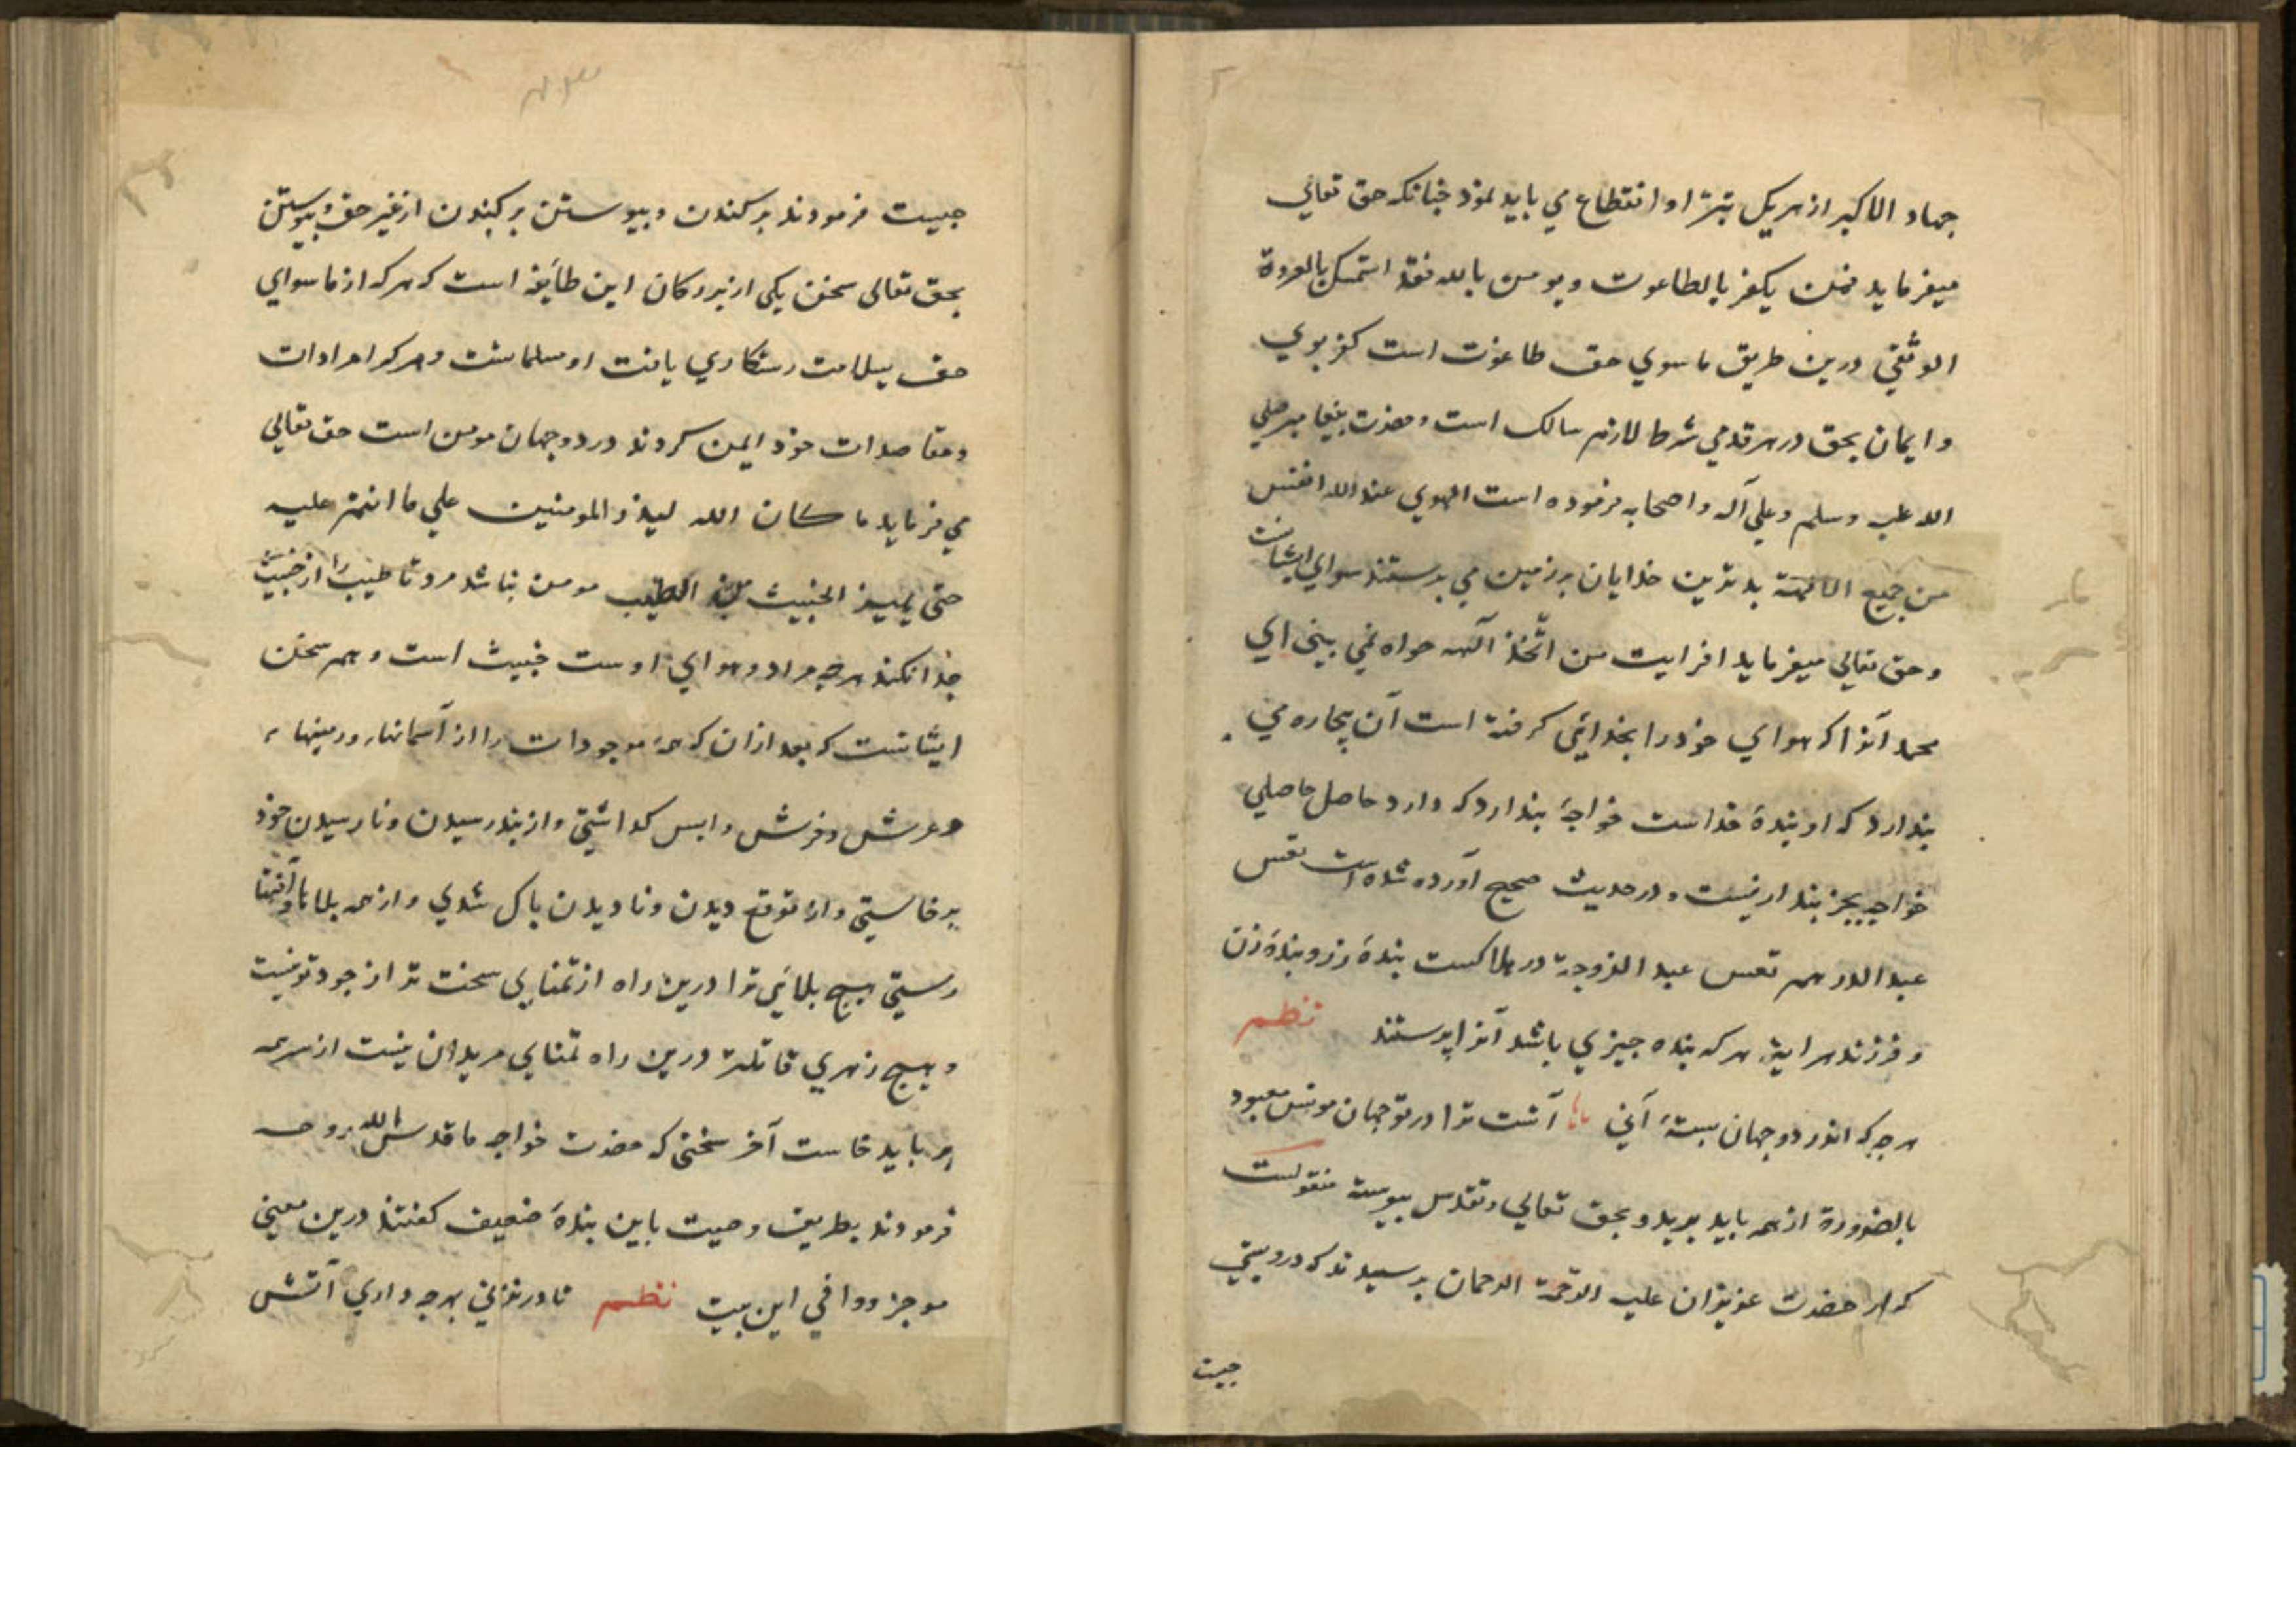 جهاد الاکبر از هریک تبرا و انقطاع می باید نمود چنانکه حق تعالی
میفرماید فمن یکفر بالطاغوت ویومن بالله فقد استمسک بالعروة
الوثقی درین طریق ماسوی حق طاغوت است کفر بوی
وایمان بحق در هر قدمی شرط لازم سالک است وحضرت پیغامبر صلی
الله علیه وسلم وعلی آله واصحابه فرموده است الهوی عند الله ابغض
من جمیع الالهة بدترین خدایان بر زمین می پرستند هوای ایشانست
وحق تعالی میفرماید افرایت من اتّخذ آلهه هواه نمی بینی ای
محمد آنرا که هوای خود را بخدائی گرفته است آن بیچاره می
پندارد که او بندهٔ خداست خواجهٔ پندارد که دارد حاصل حاصلی
خواجه بجز پندار نیست ودر حدیث صحیح آورده شده است تعس
عبد الدرهم تعس عبد الزوجة در هلاکست بندهٔ زر وبندهٔ زن
وفرزند هر اینه هر که بنده چیزی باشد آنرا پرستند نظم
هر چه که اندر دو جهان بستهٔ آنی آنست ترا در دو جهان مونس ومعبود
بالضرورة از همه باید برید وبحق تعالی وتقدس پیوسته منقولست
که از حضرت عزیزان علیه الرّحمة الرحمان پرسیدند که درویشی
جیست
جیست فرمودند برکندن وپیوستن برکندن از غیر حق وپیوستن
بحق تعالی سخن یکی از بزرگان این طایفه است که هر که از ماسوای
حق بسلامت رستکاری یافت او مسلمانست وهر که از مرادات
ومقاصدات خود ایمن کردند در دو جهان مومن است حق تعالی
می فرماید ما کان الله لیذر المومنین علی ما انتم علیه
حتی یمیز الخبیث من الطیب مومن نباشد مرد تا طیب را از خبیث
جدا نکند هرچه مراد وهوای اوست خبیث است وهم سخن
ایشانست که بعد ازان که همهٔ موجودات را از آسمانها وزمینها
وعرش وفرش واپس گذاشتی واز بند رسیدن ونارسیدن خود
برخاستی واز توقع دیدن ونادیدن پاک شدی واز همه بلاها وآفتها
رستی هیچ بلائی ترا درین راه از تمنای سخت تر از خود تو نیست
وهیچ زهری قاتلتر درین راه تمنای مریدان نیست از سر همه
بر باید خاست آخر سخنی که حضرت خواجه ما قدس الله روحه
فرمودند بطریق وصیت باین بندهٔ ضعیف گفتند درین معنی
موجز ووافی این بیت نظم تا در نزنی بهرچه داری آتش